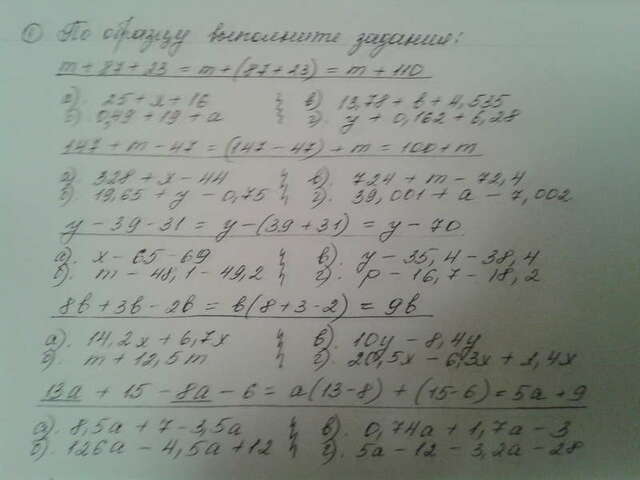 ① По образцу выполните задания:
m + 87 + 23 = m + (87 + 23) = m + 110
а). 25 + x + 16 в) 13,78 + b + 4,535
б) 0,49 + 19 + a г). y + 0,162 + 6,28
147 + m - 47 = (147 - 47) + m = 100 + m
а) 328 + x - 44 в). 724 + m - 72,4
б). 19,65 + y - 0,75 г). 39,001 + a - 7,002
y - 39 - 31 = y - (39 + 31) = y - 70.
а). x - 65 - 69 в). y - 35,4 - 38,4
б). m - 48,1 - 49,2 г). p - 16,7 - 18,2
8b + 3b - 2b = b(8 + 3 - 2) = 9b
а). 14,2x + 6,7x в). 10y - 8,4y
б). m + 12,5m г). 20,5x - 6,3x + 1,4x
13a + 15 - 8a - 6 = a(13 - 8) + (15 - 6) = 5a + 9
а). 8,5a + 7 - 3,5a в). 0,74a + 1,7a - 3
б). 126a - 4,5a + 12 г). 5a - 12 - 3,2a - 28